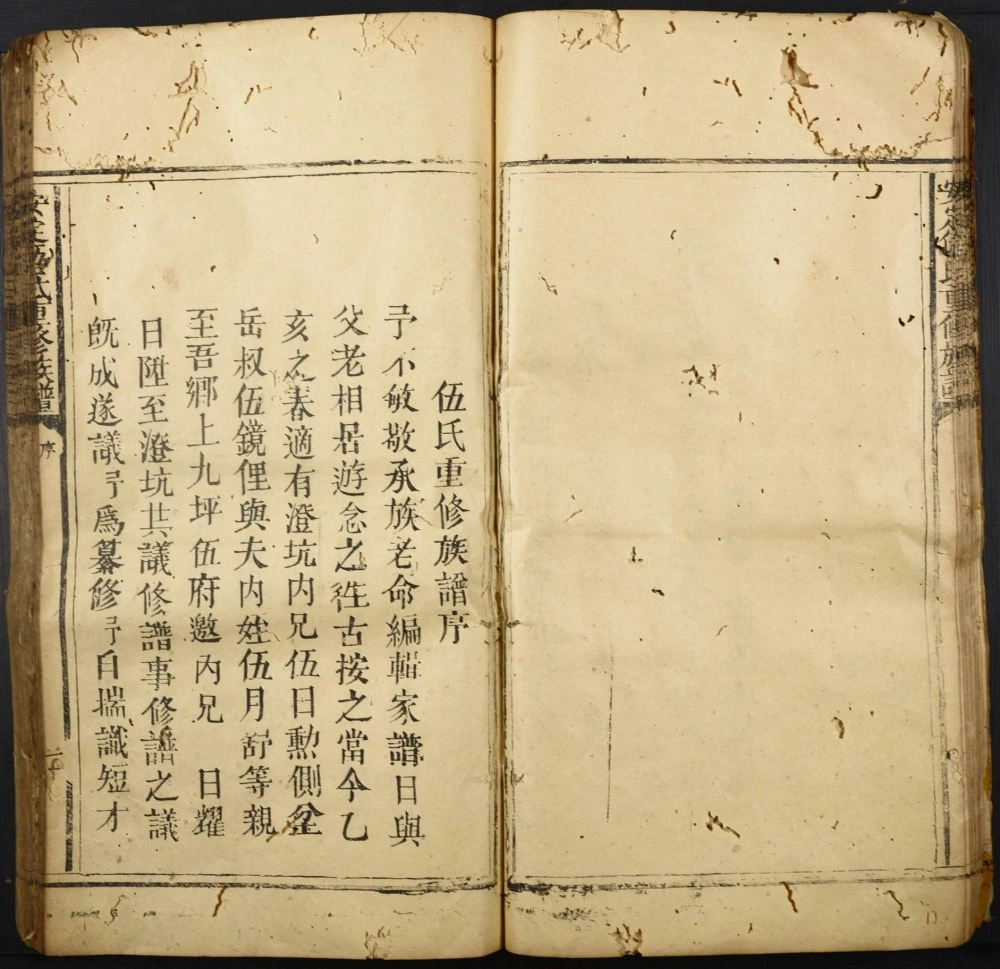 安定伍氏重修族譜
伍氏重修族譜序
予不敏敬承族老命編輯家譜日與
父老相居遊念之往古按之當今乙
亥之春適有澄坑内兄伍日勲側坌
岳叔伍鏡俚與夫内姪伍月舒等親
至吾鄉上九坪伍府邀内兄 日耀
日陞至澄坑共議修譜事修譜之議
既成遂議予爲纂修予自揣識短才
安定伍氏重修族譜
序